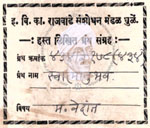 इ. वि. का. राजवाडे संशोधन मंडळ धुळे.
हस्त लिखित ग्रंथ संग्रह
ग्रंथ क्रमांक
ग्रंथ नाम स्वात्मानुभव.
विषय म. वेदांत